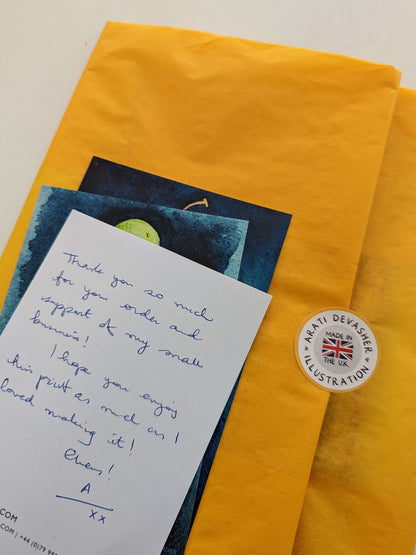 Thank you so much
for you order and
support of my small
business!
I hope you enjoy
this print as much as I
loved making it!
Cheers!
A
xx
.COM
.COM | +44 (0)79
ARATI DEVASHER
MADE IN
THE U.K.
ILLUSTRATION